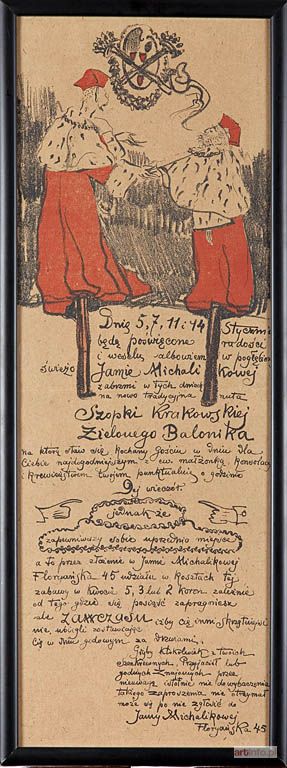 Dnia 5, 7, 11 i 14 Stycznia
będą poświęcone radości
i weselu albowiem w pogłębionej
świeżo Jamie Michalikowej
zabrzmi w tych dniach
na nowo tradycyjna nuta
Szopki Krakowskiej
Zielonego Balonika
na którą staw się kochany Gościu w dniu dla
Ciebie najdogodniejszym z ew. małżonką konwalią
krewieństwem twojem punktualnie o godzinie
9ej wieczór.
jednak że
zapewniwszy sobie uprzednio miejsce
a to przez złożenie w Jamie Michalikowej
Floryańska 45 udziału w kosztach tej
zabawy w kwocie 5, 3 lub 2 koron zależnie
od tego gdzie się posiąść zapragniesz
ale ZAWCZASU iżby Cię inni skrzętniejsi
nie ubiegli zostawiając
Cię w dniu godowym za drzwiami.
Gdyby ktokolwiek z twoich
Przyjaciół lub
godnych znajomych przez
nieuwagę istotnie nie do wybaczenia
takiego zaproszenia nie otrzymał
może się po nie zgłosić do
Jamy Michalikowej
Floryańska 45
artinfo.pl